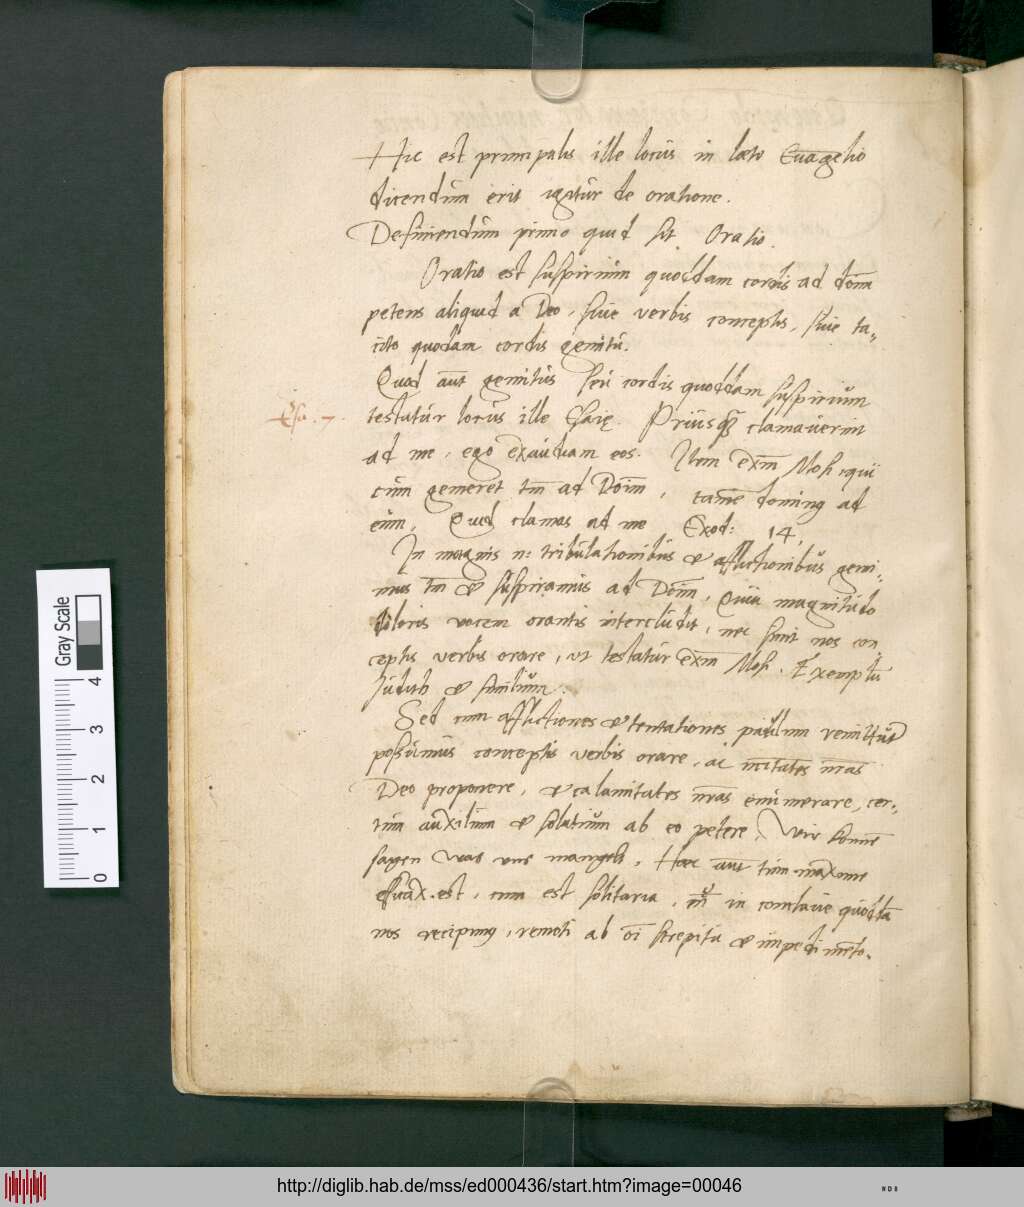 Hic est principalis ille locus in læto Euãgelio
dicendum erit igitur de oratione.
Definiendum primo quid sit Oratio.
Oratio est suspirium quoddam cordis ad dom̄
petens aliquid a Deo, siue verbis conceptis, siue ta=
cito quodam cordis gemitu.
Quod aut̄ gemitus seu cordis quoddam suspirium
testatur locus ille Esaię. Priusq̃ clamauerint
Esa. 7.
ad me, ego exaudiam eos. Item exm̄ Mosi, qui
cum gemeret tm̄ ad Dom̄, tamē dominꝰ ad
eum, Quid clamas ad me Exod: 14,
In magnis n: tribulationibus & afflictionibus gemi=
mus tm̄ & suspiramus ad Dom̄, Quia magnitudo
doloris vocem orantis intercludit, nec sunt nos con
ceptis verbis orare, ut testatur exm̄ Mosi. Exemplū
Judith & similium.
Sed cum afflictiones & tentationes paulum remittūt
possumus conceptis verbis orare, ac nc̄itates nr̄as
Deo proponere, & calamitates nr̄as enumerare, cer=
tum auxilium & solatium ab eo petere, Wir konnē
sagen was vns mangelt. Hæc aut̄ tum maxime
efficax est, cum est solitaria, in conclaue quodda
nos recipimꝰ, remoti ab oī strepitu & impedimēto.
Gray Scale
4
3
2
1
0
http://diglib.hab.de/mss/ed000436/start.htm?image=00046